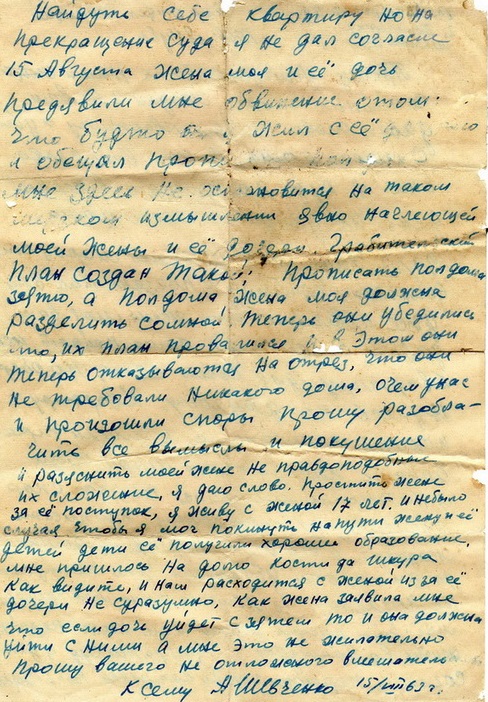 Найдуть себе квартиру но на
прекращение суда я не дал согласие
15 Августа жена моя и её дочь
предявили мне обвинение отом:
что будто я жил с её
я обещал пропи
мне здесь не остановится на таком
измышлении явно наглеющей
моей жены и её дочери. Грабительский
план создан такой: Прописать полдома
зятю, а полдома жена моя должна
разделить сомной теперь они убедились
что, их план провалился и в этом они
теперь отказываются на отрез, что они
не требовали никакого дома, очем унас
и произошли споры прошу разобла-
чить все вымыслы и покушения
и разяснить моей жене не правдоподобные
их сложение, я даю слово. Простить жене
за её поступок, я живу с женой 17 лет. и небыло
случая чтобы я мог покинуть на пути жену и её
детей дети её получили хорошие образование,
мне пришлось на долю кости да шкура
как видите, и нам расходится с женой из за её
дочери не суразумно, как жена заявила мне
что если дочь уйдет с зятем то и она должна
уйти с ними а мне это не жилательно
прошу вашего не отложного вмешатель
К сему АШевченко 15/VIII 63 г.